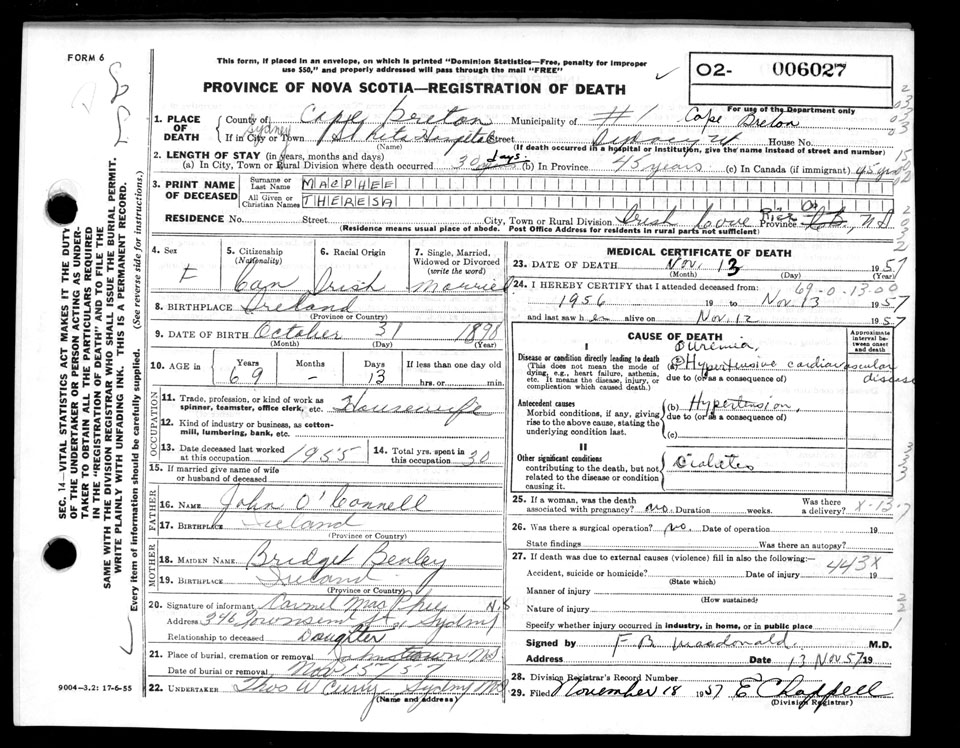 FORM 6
This form, if placed in an envelope, on which is printed "Dominion Statistics—Free, penalty for improper
use $50," and properly addressed will pass through the mail "FREE"
O2- 006027
PROVINCE OF NOVA SCOTIA—REGISTRATION OF DEATH
For use of the Department only
1. PLACE OF DEATH
County of Cape Breton Municipality of #1 Cape Breton
If in City or Town Sydney St Rita Hospital Street House No.
(Name) (If death occurred in a hospital or institution, give the name instead of street and number)
2. LENGTH OF STAY (in years, months and days)
(a) In City, Town or Rural Division where death occurred 30 days (b) In Province 45 years (c) In Canada (if immigrant) 45 yrs
3. PRINT NAME OF DECEASED
Surname or Last Name MACPHEE
All Given or Christian Names THERESA
RESIDENCE No. Street City, Town or Rural Division Irish Cove Rich Co Province C.B., N.S
(Residence means usual place of abode. Post Office Address for residents in rural parts not sufficient)
4. Sex 5. Citizenship (Nationality) 6. Racial Origin 7. Single, Married, Widowed or Divorced (write the word)
f Can Irish Married
8. BIRTHPLACE Ireland
(Province or Country)
9. DATE OF BIRTH October 31 1898
(Month) (Day) (Year)
10. AGE in Years Months Days If less than one day old
69 - 13 hrs. or min.
OCCUPATION
11. Trade, profession, or kind of work as
spinner, teamster, office clerk, etc. Housewife
12. Kind of industry or business, as cotton-
mill, lumbering, bank, etc.
13. Date deceased last worked
at this occupation 1955
14. Total yrs. spent in
this occupation 30
15. If married give name of wife
or husband of deceased
FATHER
16. NAME John O'Connell
17. BIRTHPLACE Ireland
(Province or Country)
MOTHER
18. MAIDEN NAME Bridget
19. BIRTHPLACE Ireland
(Province or Country)
20. Signature of informant Carmel MacPhee
Address 346 Townsend St Sydney N.S
Relationship to deceased Daughter
21. Place of burial, cremation or removal Johnstown NS
Date of burial or removal Nov 15 / 57
22. UNDERTAKER Thos W Curry, Sydney NS
(Name and address)
9004-3.2: 17-6-55
MEDICAL CERTIFICATE OF DEATH
23. DATE OF DEATH Nov. 13 1957
(Month) (Day) (Year)
69-0-13-00
24. I HEREBY CERTIFY that I attended deceased from:
1956 19 to Nov 13 1957
and last saw her alive on Nov. 12 1957
CAUSE OF DEATH
Approximate interval between onset and death
I
Disease or condition directly leading to death
(This does not mean the mode of
dying, e.g., heart failure, asthenia,
etc. It means the disease, injury, or
complication which caused death.)
Uremia,
(a) Hypertensive cardiovascular disease
due to (or as a consequence of)
Antecedent causes
Morbid conditions, if any, giving
rise to the above cause, stating the
underlying condition last.
(b) Hypertension,
due to (or as a consequence of)
(c)
II
Other significant conditions
contributing to the death, but not
related to the disease or condition
causing it.
Diabetes
25. If a woman, was the death
associated with pregnancy? no. Duration weeks. Was there a delivery? X-13
26. Was there a surgical operation? no. Date of operation 19
State findings Was there an autopsy?
27. If death was due to external causes (violence) fill in also the following:—
443X
Accident, suicide or homicide? Date of injury 19
(State which)
Manner of injury
(How sustained)
Nature of injury
Specify whether injury occurred in industry, in home, or in public place
Signed by F B Macdonald. M.D.
Address Date 13 Nov 57 19
28. Division Registrar's Record Number
29. Filed November 18 1957 E Chappell
(Division Registrar)
SEC. 14—VITAL STATISTICS ACT MAKES IT THE DUTY
OF THE UNDERTAKER OR PERSON ACTING AS UNDER-
TAKER TO OBTAIN ALL THE PARTICULARS REQUIRED
IN THE "REGISTRATION OF DEATH" AND TO FILE THE
SAME WITH THE DIVISION REGISTRAR WHO SHALL ISSUE THE BURIAL PERMIT.
WRITE PLAINLY WITH UNFADING INK. THIS IS A PERMANENT RECORD.
Every item of information should be carefully supplied. (See reverse side for instructions.)